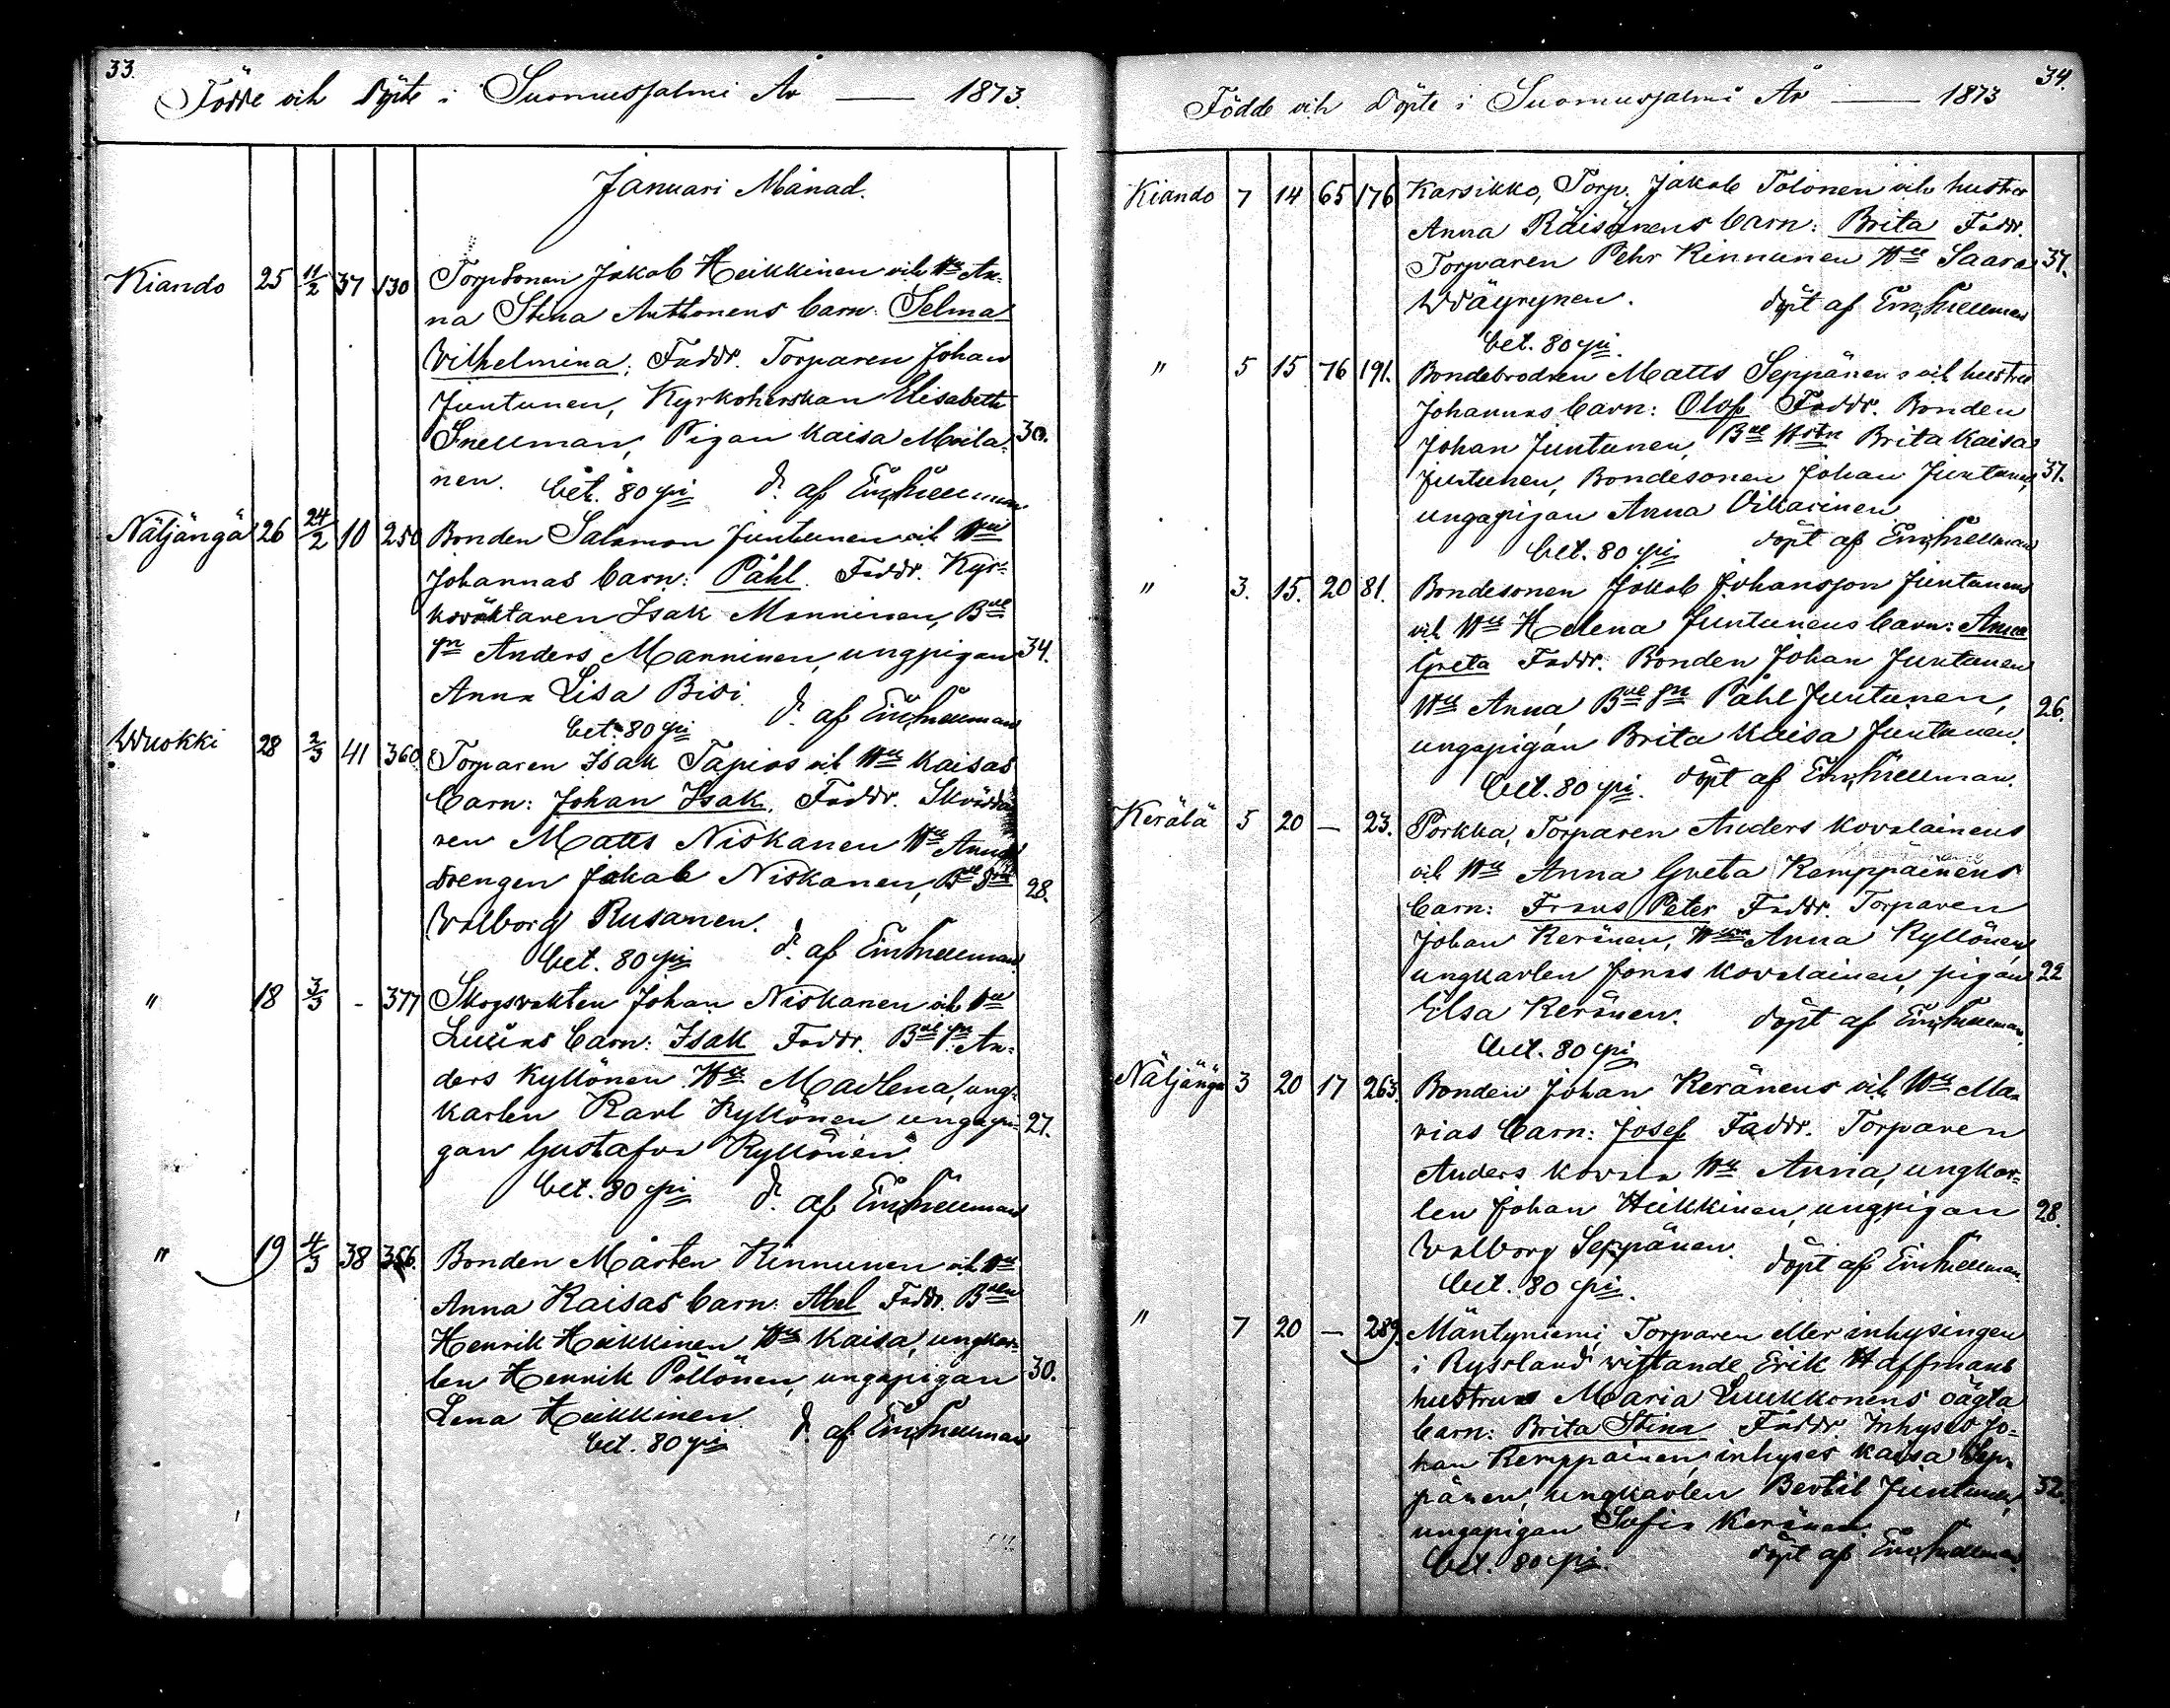 33.
Födde och Döpte i Suomussalmi År — 1873.
Januari Månad.
Kiando 25 11/2 37 130 Torpsonen Jakob Heikkinen och Hu An-
na Stina Anttonens barn: Selma
Wilhelmina; Faddr. Torparen Johan
Juntunen, Kyrkoherskan Elisabeth
Snellman, Pigan Kaisa Moila- 30.
nen. bet. 80 pi d. af Em. Snellman
Näljängä 26 24/2 10 250 Bonden Salomon Juntunen och Hu
Johannas barn: Påhl. Faddr. Kyr-
kováktaren Isak Manninen, Bde
sn Anders Manninen, ungpigan 34.
Anna Lisa Bisi.
bet. 80 pi d. af Em. Snellman
Wuokki 28 2/3 41 360 Torparen Isak Tapios och Hu Kaisas
barn: Johan Isak. Faddr. Skrädda
ren Matts Niskanen Hu Anna,
drengen Jakob Niskanen, Bde 28.
Walborg Rusanen.
bet. 80 pi d. af Em. Snellman
" 18 3/3 - 377 Skogsvakten Johan Niskanen och Hu
Luisas barn: Isak Faddr. Bde sn An-
ders Kyllönen Hu Madlena, ung-
karlen Karl Kyllönen ungapi- 27.
gan Gustafva Kyllönen
bet. 80 pi d. af Em. Snellman
" 19 4/3 38 356. Bonden Mårten Kinnunen och Hu
Anna Kaisas barn: Abel Faddr. Bden
Henrik Heikkinen Hu Kaisa, ungkar-
len Henrik Pöllönen, ungapigan 30.
Lena Heikkinen
bet. 80 pi d. af Em. Snellman
34.
Födde och Döpte i Suomussalmi År — 1873
Kiando 7 14 65 176 Karsikko, Torp. Jakob Tolonen och hustru
Anna Räisänens barn: Brita Faddr.
Torparen Pehr Kinnunen Hu Saara 37.
Wäyrynen. döpt af Em. Snellman
bet. 80 pi.
" 5 15 76 191. Bondebrodren Matts Seppänens och hustru
Johannas barn: Olof Faddr. Bonden
Johan Juntunen, Bde Brita Kaisa
Juntunen, Bondesonen Johan Juntunen, 37.
ungapigan Anna Oikarinen
bet. 80 pi döpt af Em. Snellman
" 3. 15. 20 81. Bondesonen Jakob Johansson Juntunens
och Hu Helena Juntunens barn: Anna
Greta Faddr. Bonden Johan Juntunen
Hu Anna, Bde sn Påhl Juntunen, 26.
ungapigan Brita Kaisa Juntunen.
bet. 80 pi. döpt af Em. Snellman.
Kerälä 5 20 — 23. Porkka, Torparen Anders Kovalainens
och Hu Anna Greta Kemppainens
barn: Frans Peter Faddr. Torparen
Johan Keränen, Anna Kyllönen
ungkarlen Jonas Kovalainen, pigan 22
Elsa Keränen. döpt af Em. Snellman.
bet. 80 pi
Näljängä 3 20 17 263. Bonden Johan Keränens och Hu Ma-
rias barn: Josef Faddr. Torparen
Anders Kovala Hu Anna, ungkar-
len Johan Heikkinen, ungpigan 28.
Walborg Seppänen. döpt af Em. Snellman.
bet. 80 pi.
" 7 20 — 289. Mäntyniemi, Torparen eller inhysingen
i Ryssland vistande Erik Haffmans
hustrus Maria Luukkonens oägta
barn: Brita Stina Faddr. Inhyses Jo-
han Kemppainen, inhyses Kaisa Sep-
pänen, ungkarlen Bertil Juntunen, 32.
ungapigan Sofia Keränen.
bet. 80 pi. döpt af Em. Snellman.